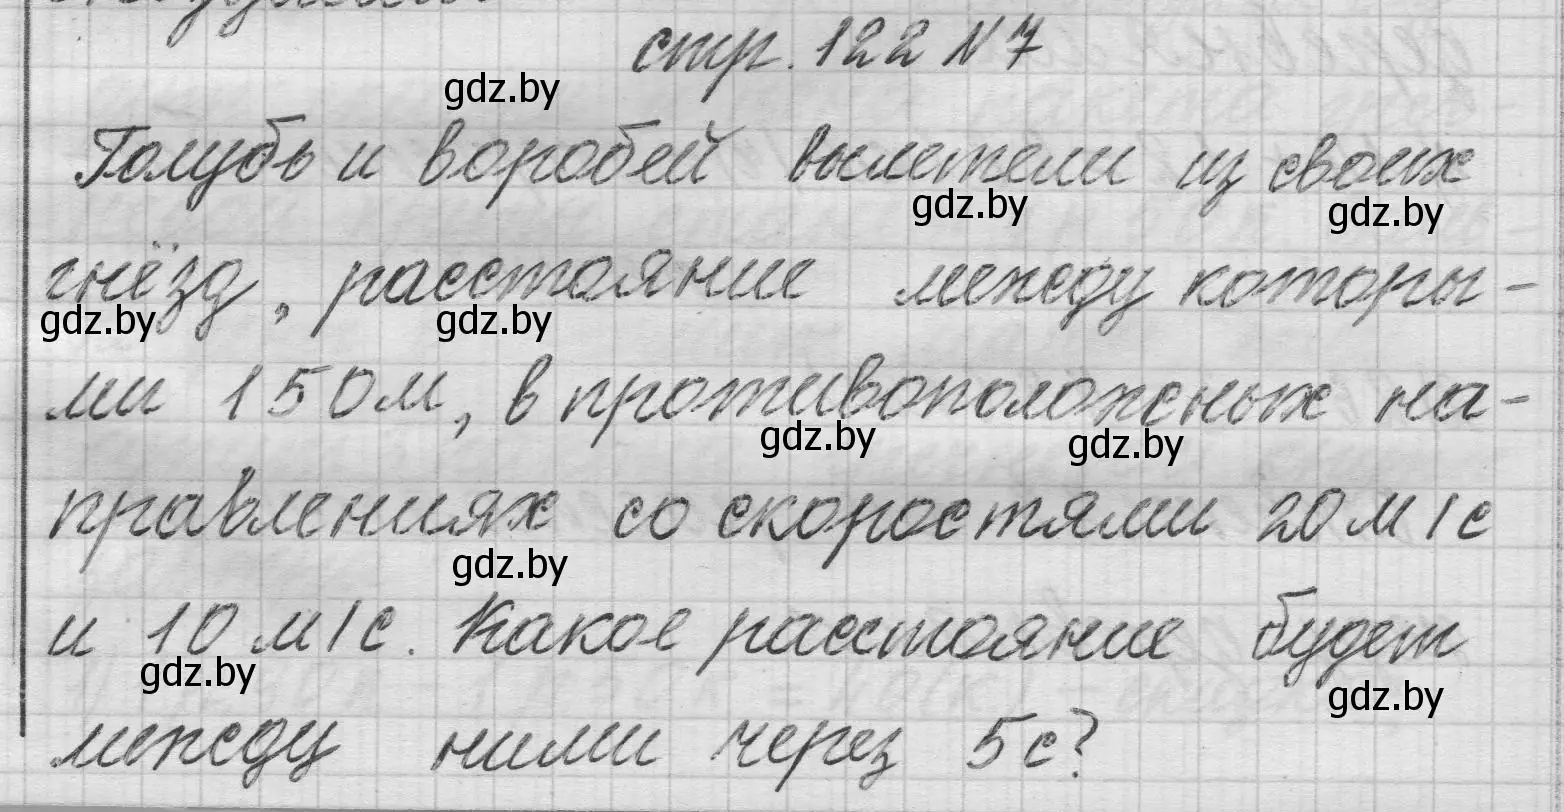 стр. 122 N 7
gdz.by
Голубь и воробей вылетели из своих
gdz.by gdz.by
гнёзд, расстояние между которы-
gdz.by gdz.by
ми 150м, в противоположеных на-
gdz.by gdz.by
правлениях со скоростями 20 м/с
gdz.by
и 10 м/с. Какое расстояние будет
gdz.by gdz.by
между ними через 5с?